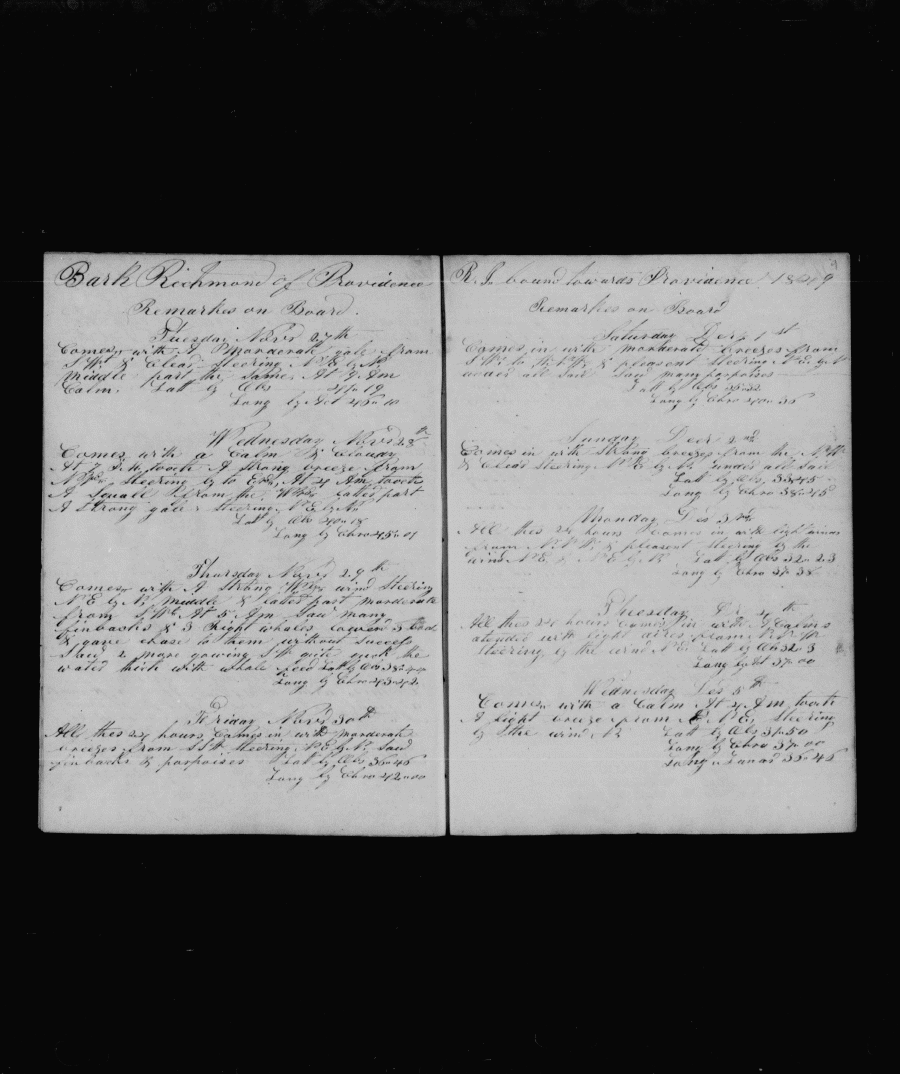 Bark Richmond of Providence
Remarkes on Board.
Tuesday Nov 27th
Comes with A Morderate gale from
SW & Clear Steering N E by N
Middle part the Same At 9 Am
Calm. Latt by Obs 41 19
Long by
Wednesday Nov 28th
Comes with a Calm & Cloudy
At 7 P.M. took A Strong breeze from
Steering by to At 4 Am took
A Squall from the latter part
A Strong gale Steering N E by N
Latt by Obs 40 18
Long by Chro 45 01
Thursday Nov 29th
Comes with A Strong wind Steering
N E by N, Middle & latter part morderate
from At 5 Am Saw many
finbacks & 3 Right whales lowerd 3 boats
& gave chase to them without success
Saw 2 more gowing SW quite quick the
water thick with whale feed Latt by Obs 38
Long by Chro 43 42
Friday Nov 30th
All thes 24 hours Comes in with morderate
breezes from SSW Steering N E by N. Saw
finbacks & porpoises Latt by Obs 36 46
Long by Chro 42 00
R. I. bound towards Providence 1849
Remarkes on Board
Saturday Dec 1st
Comes in with morderate breezes from
SW to & pleasent Steering N E by N
under all Sail Saw many porpoises
Latt by Obs 35
Long by Chro 40 35
Sunday Dec 2nd
Comes in with Strong breezes from the N W
& Clear Steering N E by N. under all Sail
Latt by Obs 33 45
Long by Chro 38 45
Monday Dec 3
All thes 24 hours Comes in with light winds
from & pleasent Steering by the
wind N E & N E by N Latt by Obs 32 23
Long by Chro 37 38
Thuesday 4th
All thes 24 hours Comes in with Calms
atended with light aires from
Steering by the wind N E Latt by Obs 32 3
Long 37 00
Wednesday Des 5th
Comes with a Calm At 4 Am took
A light breeze from N E, Steering
by the wind N Latt by Obs 31 50
Long by Chro 37 00
Long 35 45